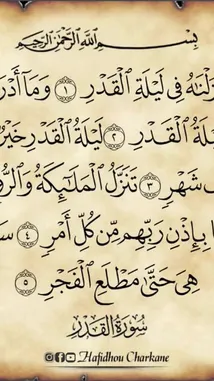 بِسْمِ اللَّهِ الرَّحْمَٰنِ الرَّحِيمِ
فِي لَيْلَةِ الْقَدْرِ ١ وَمَا
الْقَدْرِ ٢ لَيْلَةُ الْقَدْرِ خَيْرٌ
شَهْرٍ ٣ تَنَزَّلُ الْمَلَائِكَةُ
بِإِذْنِ رَبِّهِم مِّن كُلِّ أَمْرٍ ٤
هِيَ حَتَّىٰ مَطْلَعِ الْفَجْرِ ٥
سُورَةُ الْقَدْرِ
Hafidhou Charkane